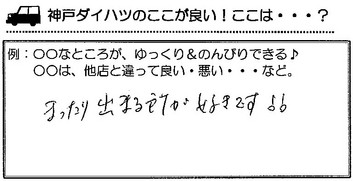 神戸ダイハツのここが良い！ここは・・・？
例：〇〇なところが、ゆっくり＆のんびりできる♪
〇〇は、他店と違って良い・悪い・・・など。
まったり出来る所が好きです♪♪